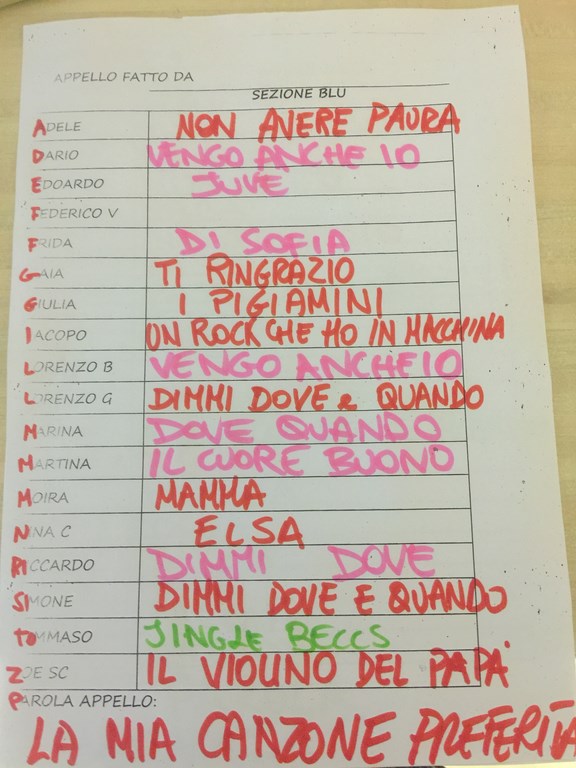 APPELLO FATTO DA
SEZIONE BLU
ADELE NON AVERE PAURA
DARIO VENGO ANCHE IO
EDOARDO JUVE
FEDERICO V
FRIDA DI SOFIA
GAIA TI RINGRAZIO
GIULIA I PIGIAMINI
IACOPO UN ROCK CHE HO IN MACCHINA
LORENZO B VENGO ANCHE IO
LORENZO G DIMMI DOVE e QUANDO
MARINA DOVE QUANDO
MARTINA IL CUORE BUONO
MOIRA MAMMA
NINA C ELSA
RICCARDO DIMMI DOVE
SIMONE DIMMI DOVE E QUANDO
TOMMASO JINGLE BECCS
ZOE SC IL VIOLINO DEL PAPÀ
PAROLA APPELLO:
LA MIA CANZONE PREFERITA